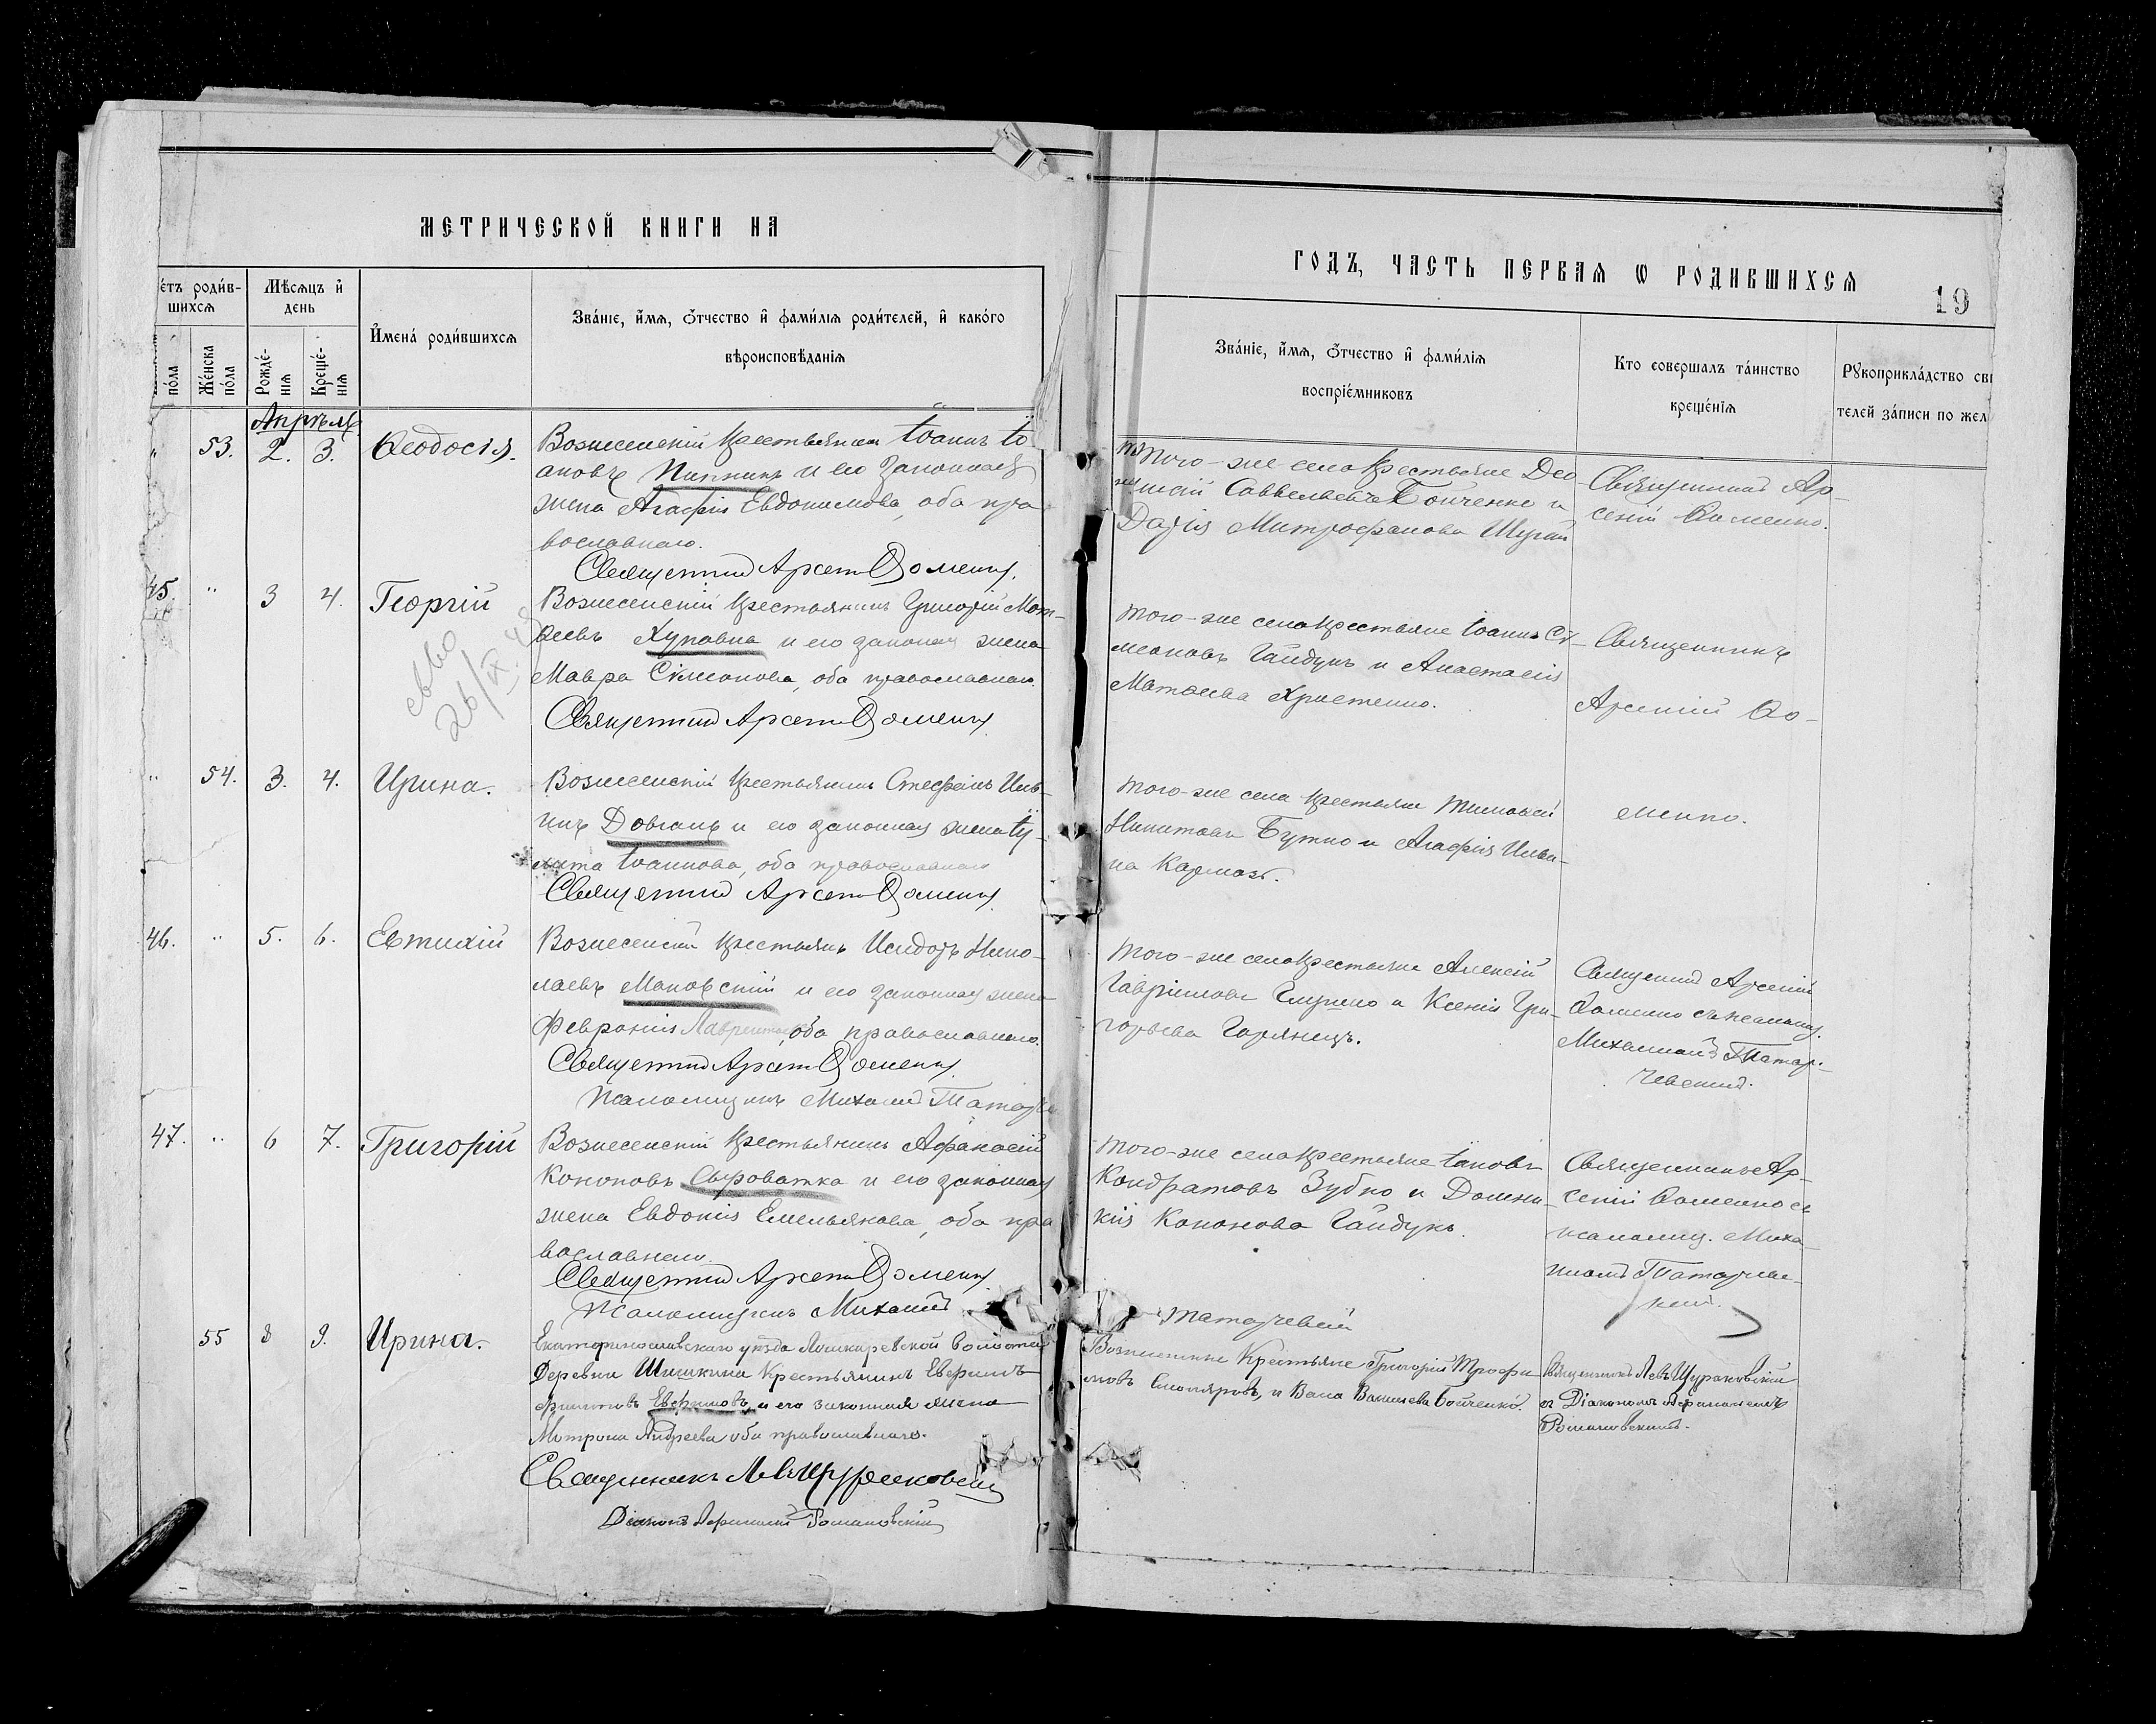 МЕТРИЧЕСКОЙ КНИГИ НА
ГОДЪ, ЧАСТЬ ПЕРВАЯ Ѡ РОДИВШИХСЯ
19
е́тъ роди́в-
шихсѧ
Мѣсѧцъ и҆
день
И҆мена́ роди́вшихсѧ
Зва́нїе, и҆́мѧ, ѻ҆́тчество и҆ фами́лїѧ роди́телей, и҆ како́го
вѣроисповѣ́данїѧ
по́ла
Же́нска
по́ла
Рожде́-
нїѧ
Креще́-
нїѧ
Зва́нїе, и҆́мѧ, ѻ҆́тчество и҆ фами́лїѧ
воспрїе́мниковъ
Кто соверша́лъ та́инство
креще́нїѧ
Рꙋкоприкла́дство сви
телей за́писи по жел
Апрѣль
53. 2. 3. Ѳеодосія.
Вознесенскій крестьянинъ Іоаннъ Іо-
анновъ и его законная
жена Агафія Евдокимова, оба пра
вославнаго.
Священникъ Арсеній Ѳоменко.
Того-же села крестьяне Део
нисій Савельевъ Бойченко и
Дарія Митрофанова Шугай
Священникъ Ар-
сеній Ѳоменко.
45. " 3 4. Георгій
Вознесенскій крестьянинъ Григорій Мат-
ѳеевъ Журавка и его законная жена
Мавра Сѵмеонова, оба православнаго.
Священникъ Арсеній Ѳоменко.
26/IX.
Того-же села крестьяне Іоаннъ Сѵ-
меоновъ Гайдукъ и Анастасія
Матѳеева Христенко.
Священникъ
Арсеній Ѳо-
" 54. 3. 4. Ирина.
Вознесенскій крестьянинъ Стефанъ Иль-
инъ Довгань и его законная жена Іу-
литта Іоаннова, оба православнаго
Священникъ Арсеній Ѳоменко.
Того-же села крестьяне Тимоѳей
Никитовъ Бутко и Агафія Ильи-
на Кармазь.
менко.
46. " 5. 6. Евтихій
Вознесенскій крестьянъ Исидоръ Нико-
лаевъ Маковскій и его законная жена
Февронія оба православнаго.
Священникъ Арсеній Ѳоменко.
Псаломщикъ Михаилъ Татарче
Того-же села крестьяне Алексій
Гавріиловъ Глушко и Ксенія Гри-
горьева Горянецъ.
Священникъ Арсеній
Ѳоменко съ псаломщ.
Михаиломъ Татар-
чевскимъ.
47. " 6 7. Григорій
Вознесенскій крестьянинъ Афанасій
Кононовъ Сыроватка и его законная
жена Евдокія Емельянова, оба пра
вославнаго.
Священникъ Арсеній Ѳоменко.
Псаломщикъ Михаилъ
Татарчевскій
Того-же села крестьяне Іаковъ
Кондратовъ Зубко и Домни-
кія Кононова Гайдукъ.
Священникъ Ар-
сеній Ѳоменко съ
псаломщ. Миха-
иломъ Татарчев-
ским.
55 8 9. Ирина.
Екатеринославскаго уѣзда Лошкаревской волости
Деревни Шишкина Крестьянинъ Евфимъ
Филиповъ Евфимовъ, и его законная жена
Матрона Андреева оба православнаго.
Священникъ Левъ Щураковскій
Діаконъ Афанасій Романовскій
Вознесенскіе Крестьяне Григорій Трофи-
мовъ Столяровъ, и Васса Васильева Бойченко.
Священникъ Левъ Щураковскій
съ Діакономъ Афанасіемъ
Романовскимъ.